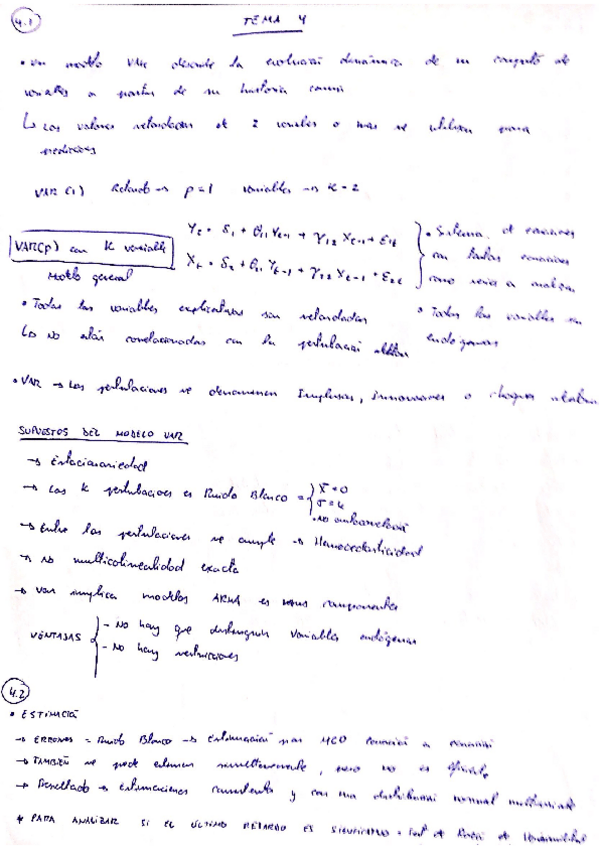 4.1 TEMA 4
• Un modelo VAR describe la evolución dinámica de un conjunto de
variables a partir de su historia común
↳ Los valores retardados de 2 variables o más se utilizan para
predicciones
VAR (1) Retardo → p=1 variables → k=2
VAR(p) con K variables
Modelo general
Y_t = δ_1 + θ_11 Y_t-1 + γ_12 X_t-1 + ε_1t
X_t = δ_2 + θ_21 Y_t-1 + γ_12 X_t-1 + ε_2t
• Sistema de ecuaciones
con tantas ecuaciones
como series a analizar
• Todas las variables son
endógenas
• Todas las variables explicativas son retardadas
↳ No están correlacionadas con la perturbación
• VAR → Las perturbaciones se denominan Impulsos, innovaciones o choques
SUPUESTOS DEL MODELO VAR
→ Estacionariedad
→ Las K perturbaciones es Ruido Blanco =
x̄ = 0
• No autocorrelación
→ Entre las perturbaciones se cumple → Homocedasticidad
→ No multicolinealidad exacta
→ VAR implica modelos ARMA es componentes
VENTAJAS
- No hay que distinguir variables endógenas
- No hay restricciones
4.2
• ESTIMACIÓN
→ ERRORES = Ruido Blanco → Estimación por MCO ecuación a ecuación
→ TAMBIÉN se puede estimar simultáneamente, pero no es eficiente
→ Resultado → estimaciones consistentes y con una distribución normal multivariante
* PARA ANALIZAR SI EL ÚLTIMO RETARDO ES SIGNIFICATIVO = de Razón de Verosimilitud